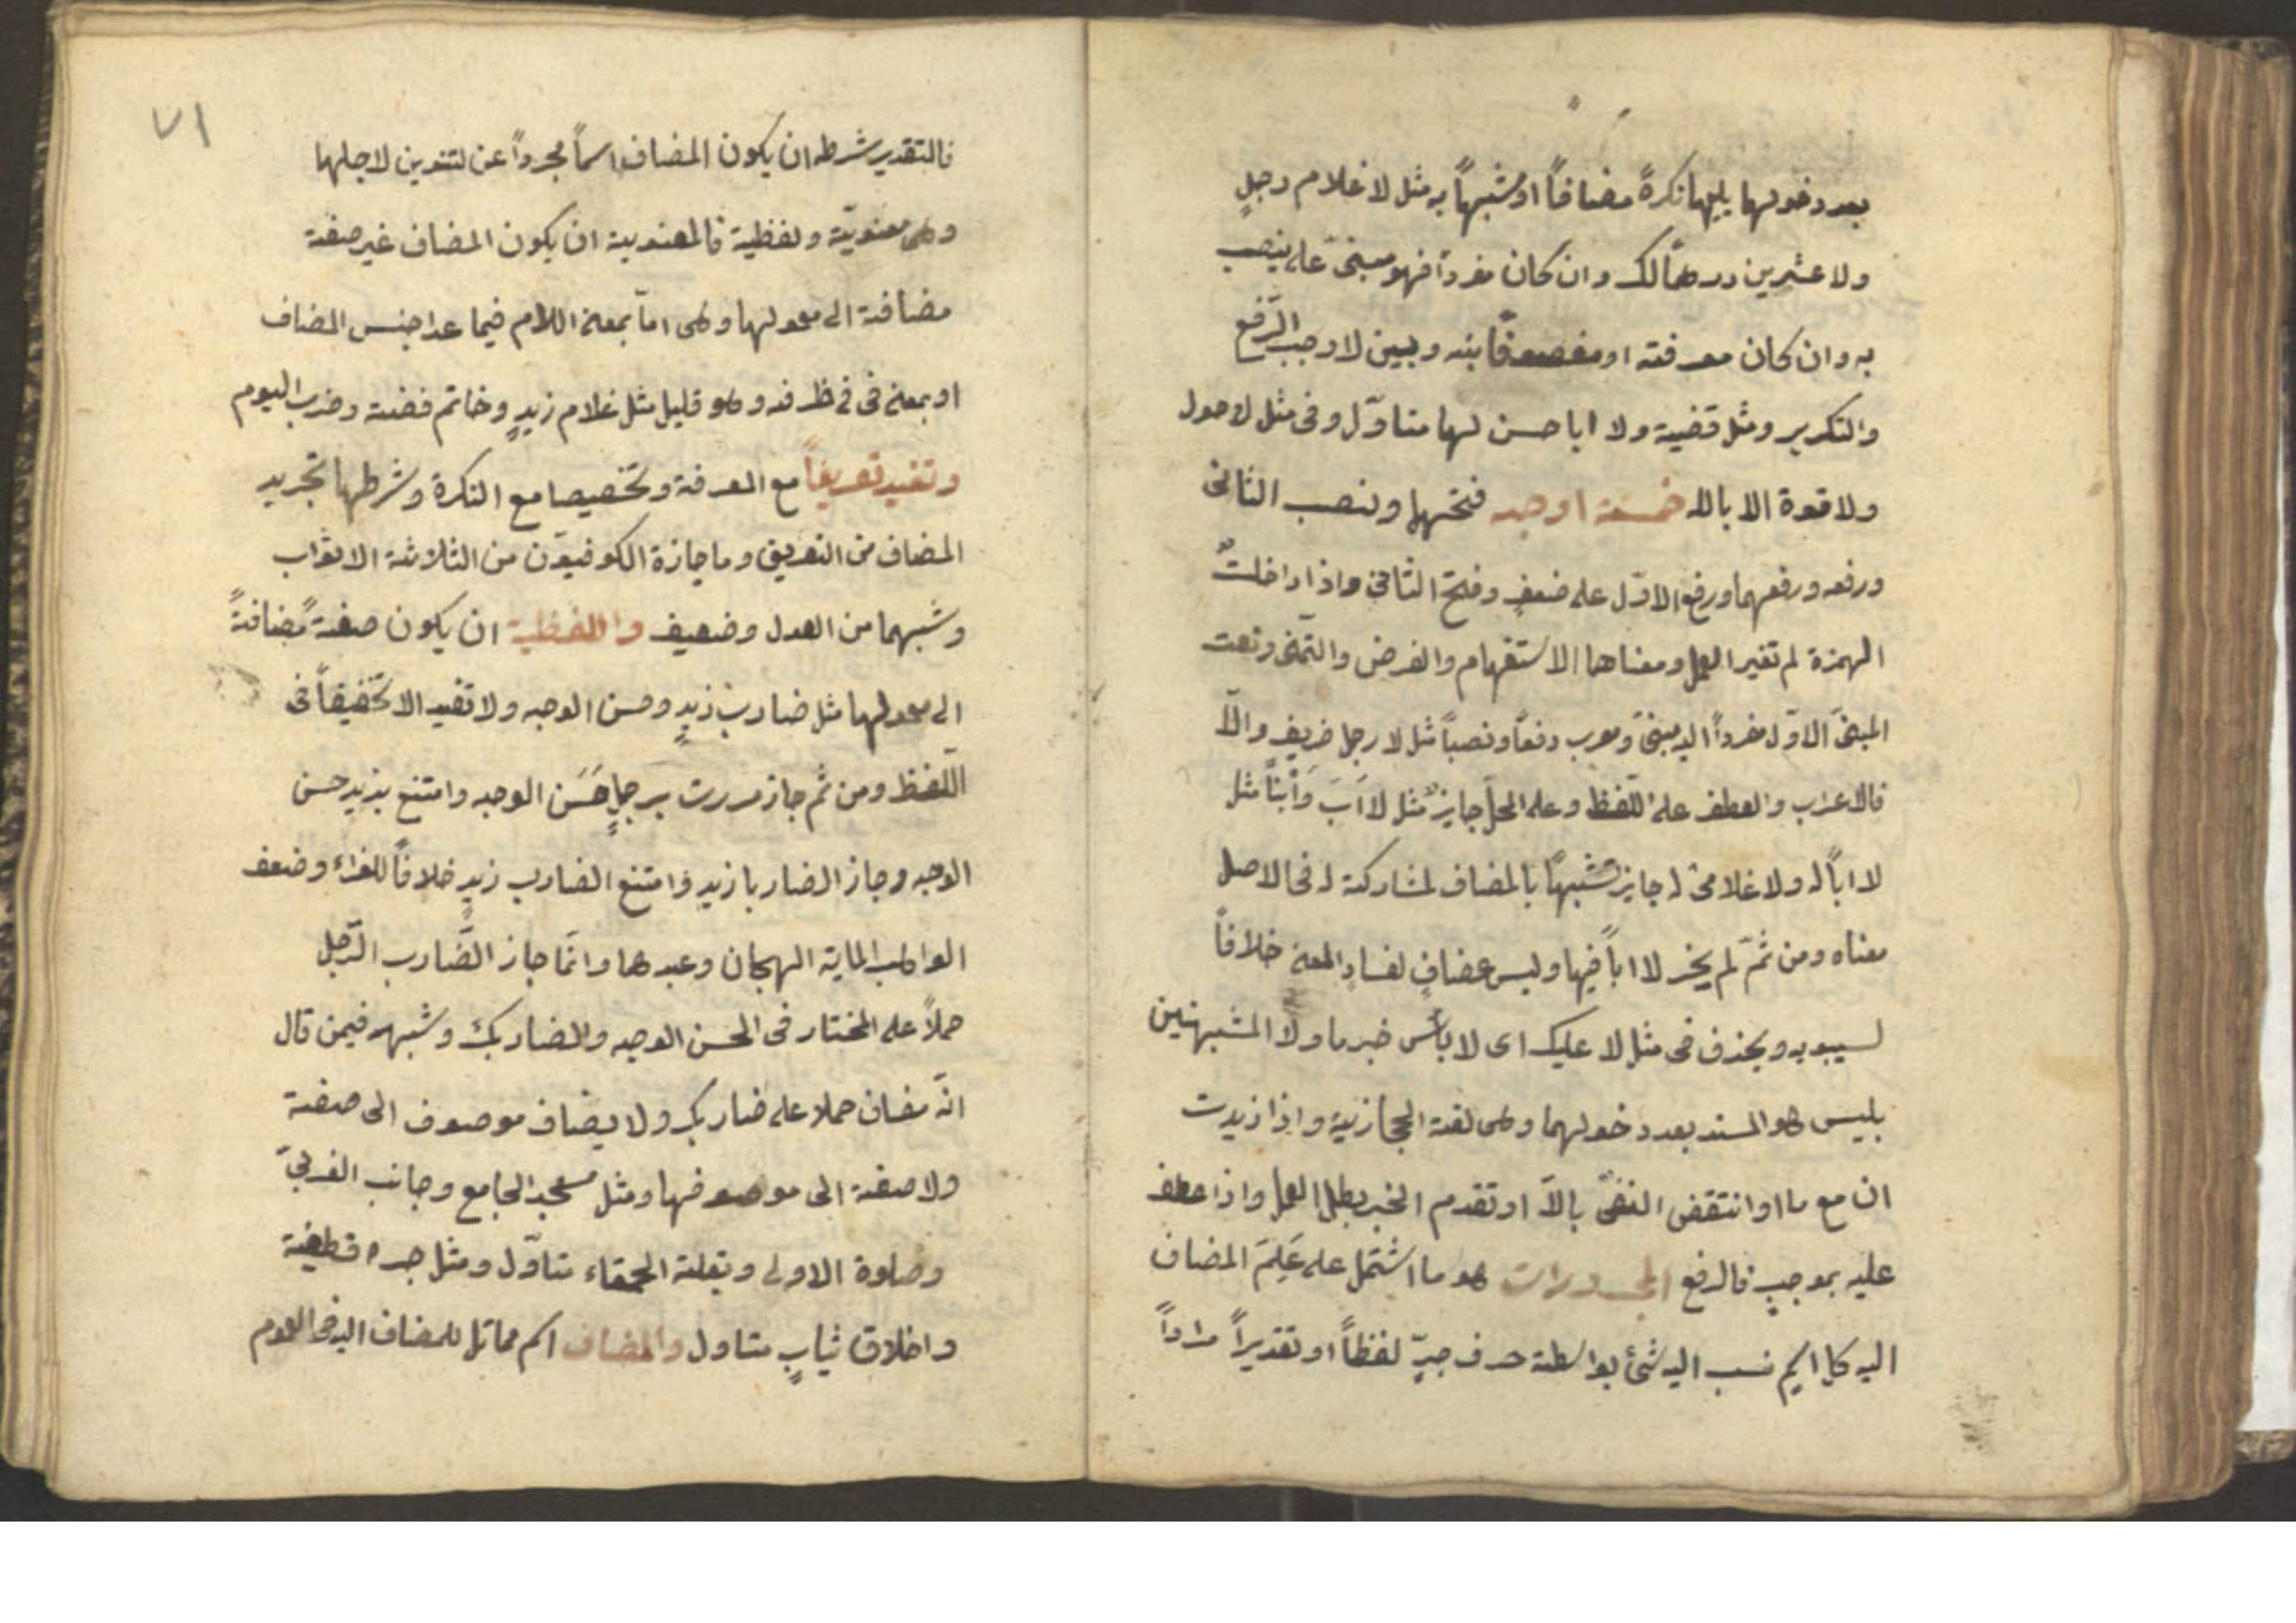 بعد دخولها يليها نكرةً مضافاً او مشبهاً به مثل لا غلام رجلٍ
ولا عشرين درهماً لك وان كان مفرداً فهو مبنىّ على ينصب
به وان كان معرفته او مفصوفاً بنه وبين لا وجب الرّفع
والتكرير ومثل قضية ولا ابا حسن لها متاوّل وفى مثل لاحول
ولا قوة الا بالله خمسة اوجه فتحهما ونصب الثانى
ورفعه ورفعهما ورفع الاوّل على ضعفٍ وفتح الثانى واذا داخلتْ
الهمزة لم تغير العمل ومعناها الاستفهام والغرض والتّمنى ونعت
المبنىّ الاوّل مفرداً اليه مبنىّ ومعرب رفعاً ونصباً مثل لا رجل ضريف والّا
فالاعراب والعطف على اللّفظ وعلى المحلّ جايزٌ مثل لا اَبَ وَاْبناً مثل
لا اباً له ولا غلامىْ له جايز تشبهاً بالمضاف لمشاركته له فى الاصل
معناه ومن ثمّ لم يجز لا اباً فيها وليس بمضافٍ لفسادِ المعنى خلافاً
لسيبويه ويحذف فى مثل لا عليك اى لا بأس خبر ما ولا المشبهتين
بليس هو المسند بعد دخولهما وهى لغته الحجازيية واذا زيدت
ان مع ما او انتقض النفىّ بالّا او تقدم الخبر بطل العمل واذا عطف
عليه بموجبٍ فالرفع المجرورات هو ما اشتمل على عَلِمَ المضاف
اليه كل اسم نسب اليه شئ بواسطة حرف جرٍّ لفظاً او تقديراً مراداً
٧١
فالتقدير شرطه ان يكون المضاف اسماً مجرداً عن لتنوين لاجلها
وهى معنويّة ولفظية فالمعنوية ان يكون المضاف غير صفة
مضافة الى معمولها وهى امّا بمعنى اللام فيما عدا جنس المضاف
او بمعنى فى فى ظرفه وهو قليل مثل غلام زيدٍ وخاتم فضة وضرب اليوم
وتفيد تعريفاً مع المعرفة وتخصيصا مع النكرة وشرطها تجريد
المضاف من التعريق وما جازة الكوفيّون من الثلاثة الاثواب
وشبهما من العدل وضعيف واللفظية ان يكون صفةً مضافةً
الى معمولها مثل ضارب زيدٍ وحسن الوجه ولا تفيد الا تخفيفاً فى
اللّفظ ومن ثم جاز مررت برجلٍ حَسَن الوجه وامتنع بزيد حسن
الوجه وجاز الضاربا زيدٍ وامتنع الضارب زيدٍ خلافاً للفراء وضعف
الواهب الماية الهجان وعبدها وانّما جاز الضّارب الرّجل
حملاً على المختار فى الحسن الوجه والضاربك وشبهه فيمن قال
انّه مضاف حملا على ضاربك ولا يضاف موصوف الى صفة
ولا صفة الى موصوفها ومثل مسجد الجامع وجانب الغربىّ
وصلوة الاولى وبقلة الحمقاء متاوّل ومثل جرد قطيفة
واخلاق ثيابٍ متاول والمضاف اسم مماثل للمضاف اليه فى العموم